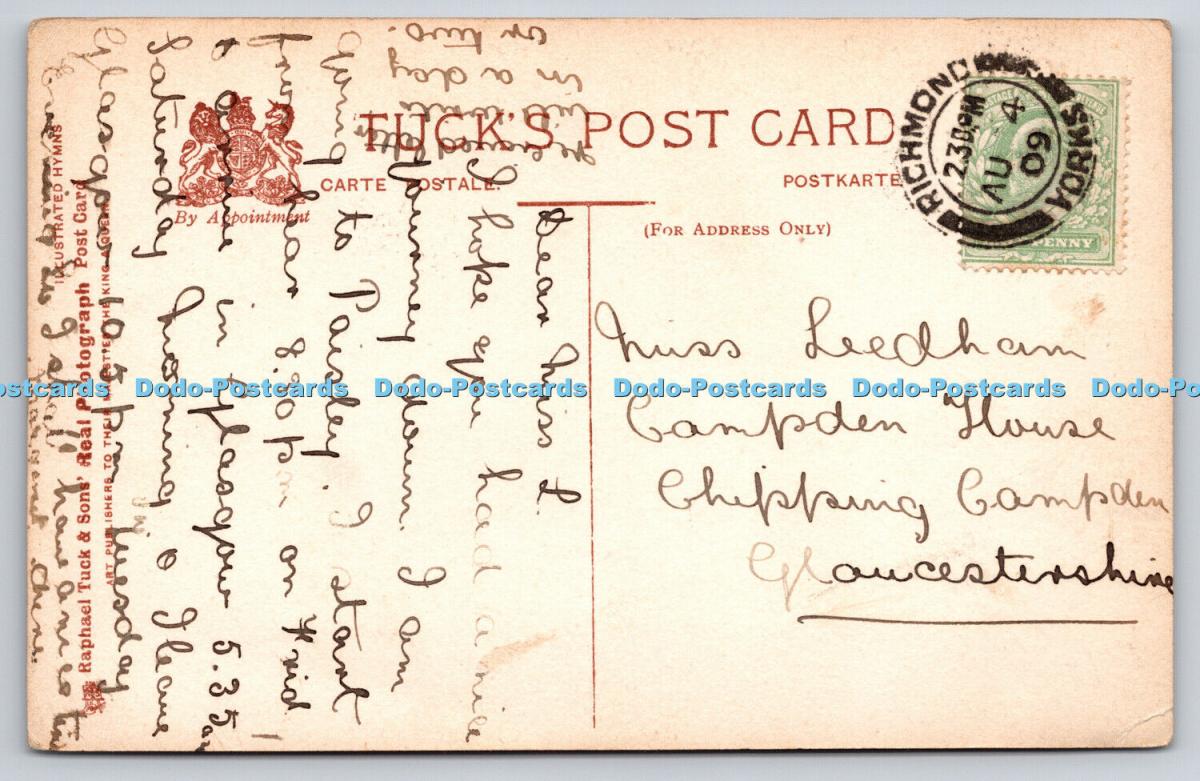 TUCK'S POST CARD
CARTE POSTALE.
POSTKARTE
By Appointment
(FOR ADDRESS ONLY)
RICHMOND
YORKS
2 30 PM
AU 4
09
PENNY
Miss Leedham
Campden House
Chipping Campden
Gloucestershire
Dear Miss L.
I hope you had a nice
journey down. I am
going to Paisley. I start
from hear 8.30 pm on Frid
to arive in Glasgow 5.35 am
Saturday morning & I leave
Glasgow 10.5 pm tuesday
evening so I shall have a nice time
there.
will write
in a day
or two.
ILLUSTRATED HYMNS
Raphael Tuck & Sons' Real Photograph Post Card
ART PUBLISHERS TO THEIR MAJESTIES THE KING & QUEEN
Dodo-Postcards Dodo-Postcards Dodo-Postcards Dodo-Postcards Dodo-Postcards